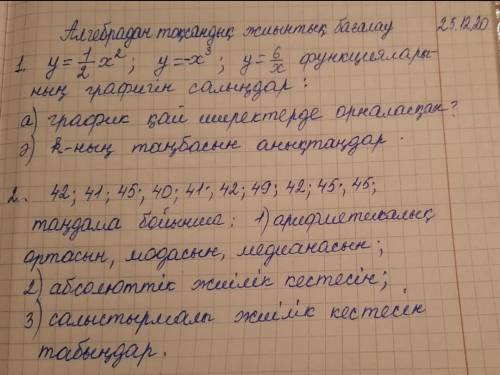 Алгебрадан тоқсандық жиынтық бағалау 25.12.20
1. y=1/2 x²; y=-x³; y=6/x функциялары-
ның графигін салыңдар:
а) график қай ширектерде орналасқан?
ә) k-ның таңбасын анықтаңдар.
2. 42; 41; 45; 40; 41; 42; 49; 42; 45; 45;
таңдама бойынша: 1) арифметикалық
ортасын, модасын, медианасын;
2) абсолюттік жиілік кестесін;
3) салыстырмалы жиілік кестесін
табыңдар.